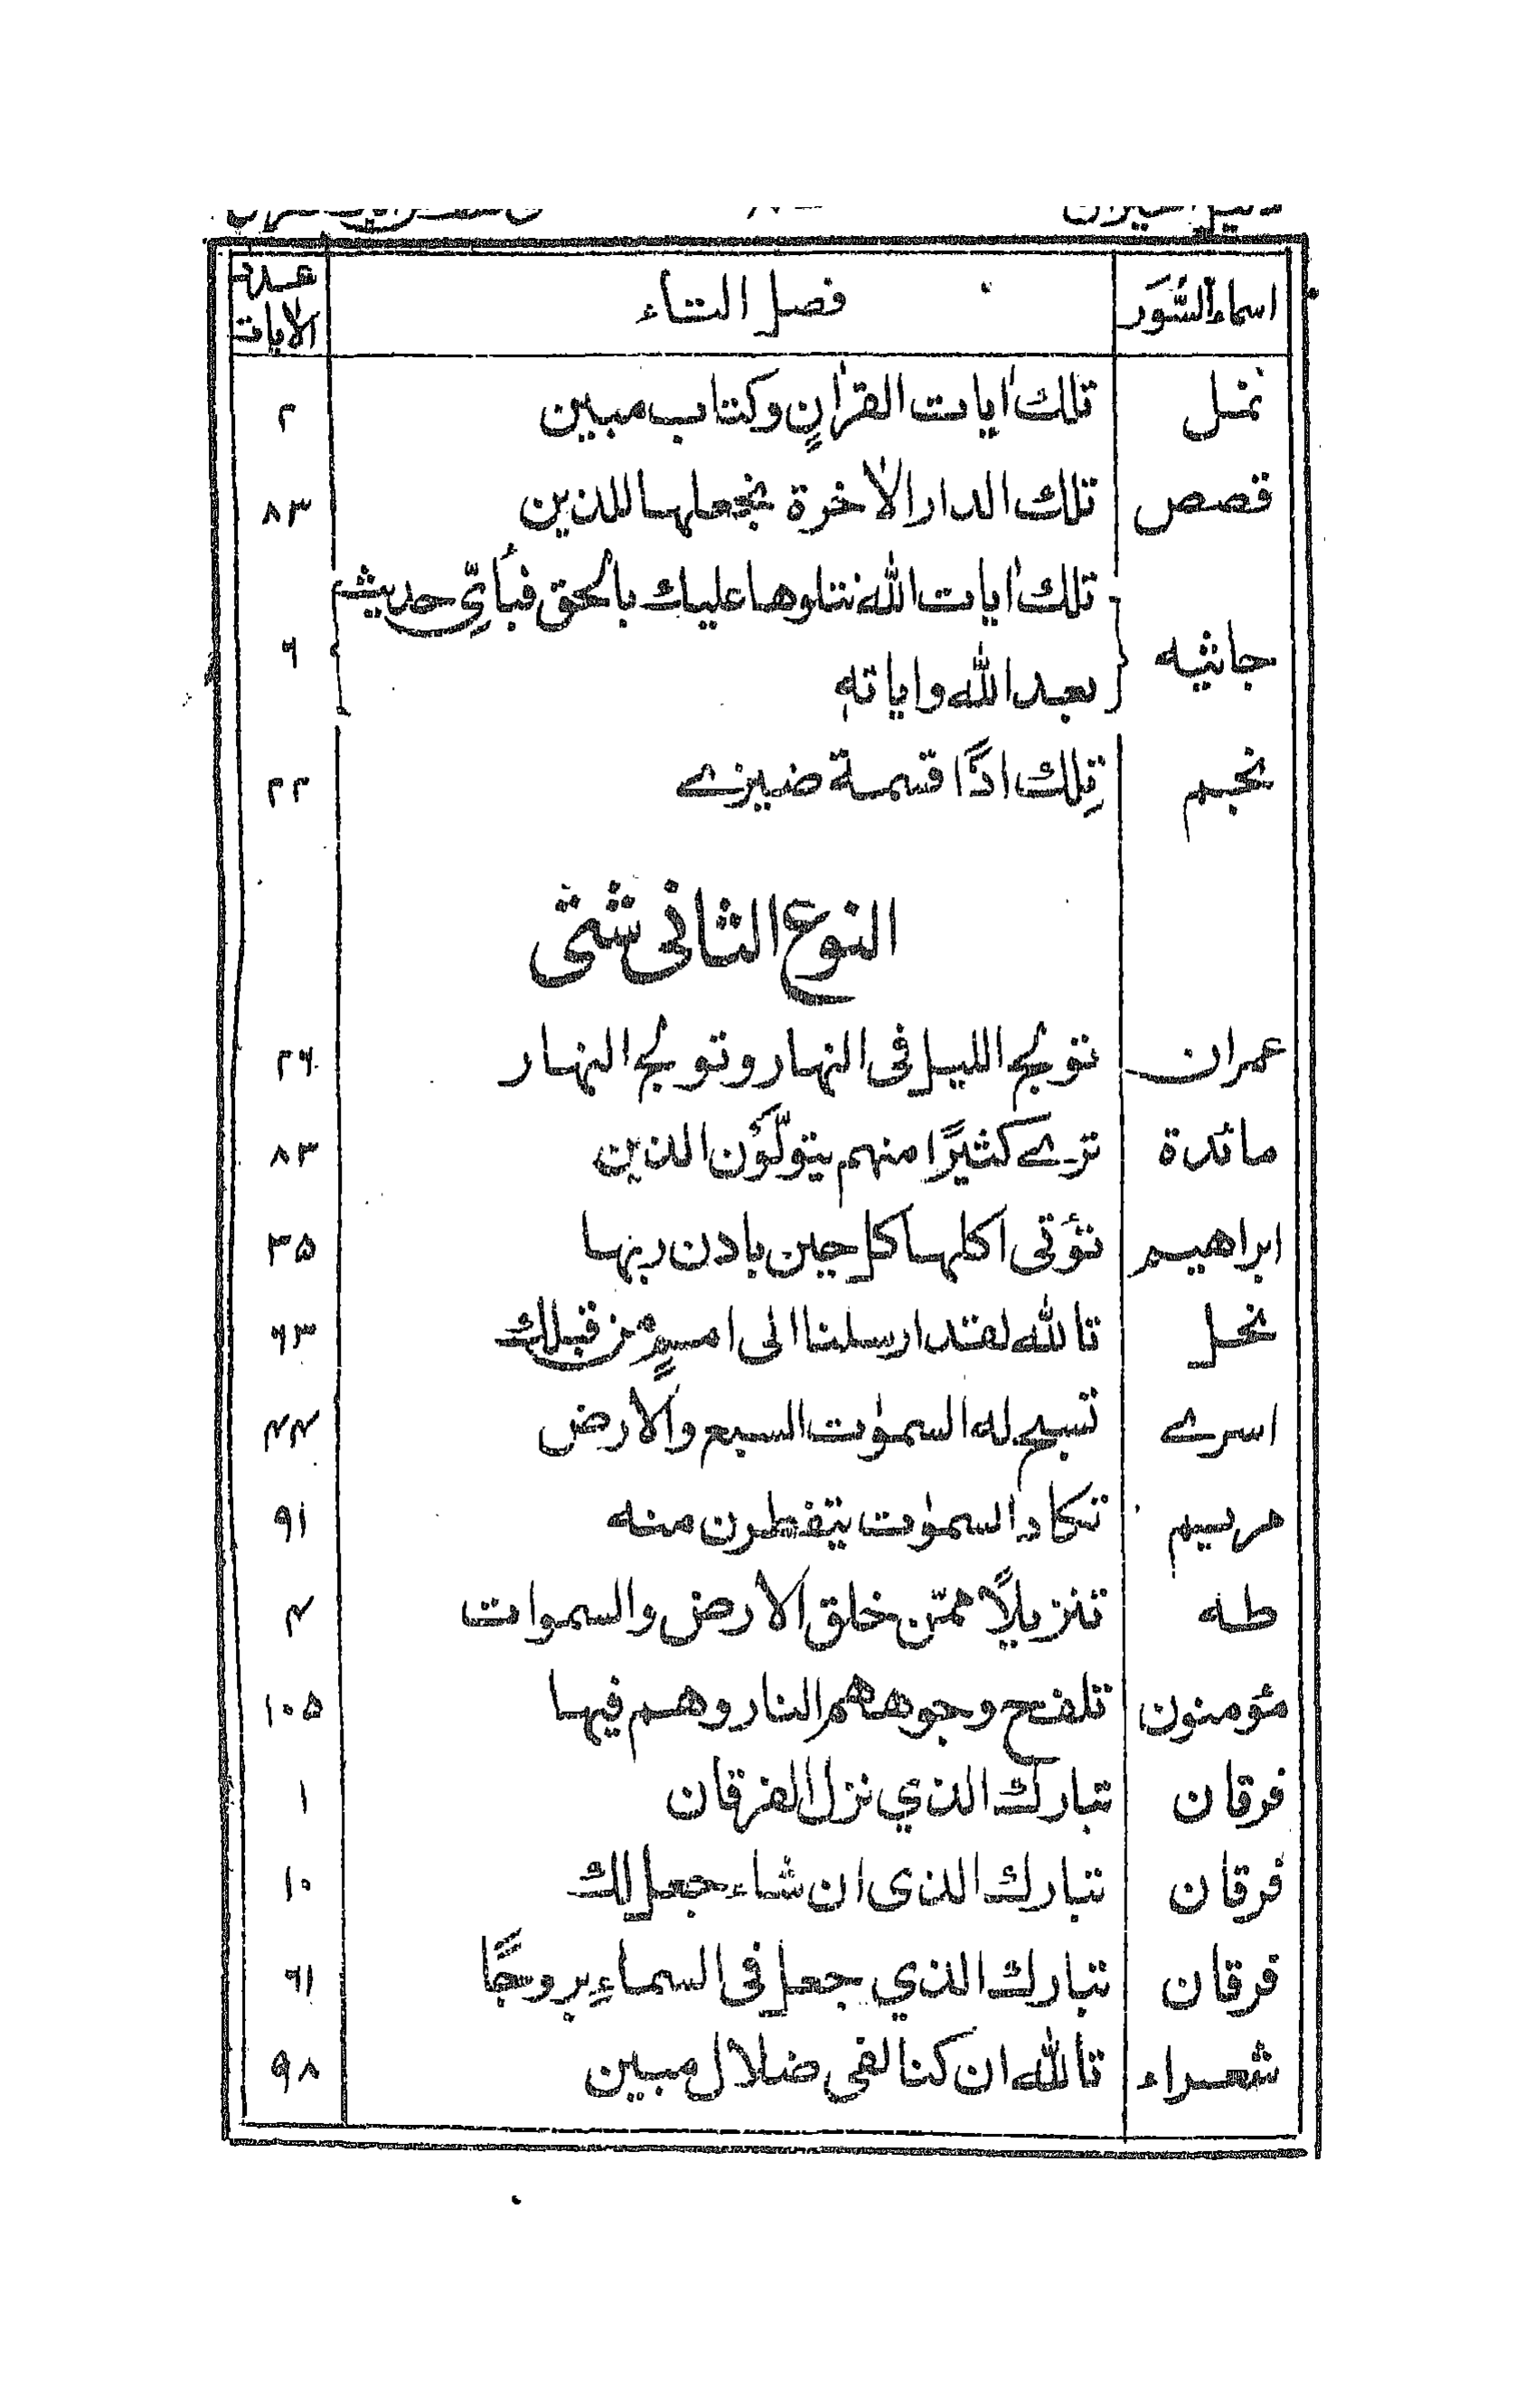 اسماء السُّوَر فصل التاء عدد الايات
نمل تلك اٰيات القراٰنِ وكتاب مبين ٢
قصص تلك الدار الاٰخرة نجعلها للذين ٨٣
تلك اٰيات الله نتلوها عليك بالحق فبأيّ حديث
جاثيه بعد الله واياته ٦
نجم تِلك اذًا قسمة ضيزے ٢٢
النوع الثانی شتی
عمران تولج الليل فی النهار وتولج النهار ٢٦
مائدة ترے كثيرًا منهم يتولَّوْن الذين ٨٣
ابراهيم تؤتی اكلها كل حين بادن ربها ٣٥
نحل تالله لقد ارسلنا الی اممٍ من قبلك ٦٣
اسرے تسبح له السمٰوٰت السبع والارض ٤٤
مريم تكاد السمٰوٰت يتفطرن منه ٩١
طه تنزيلًا ممّن خلق الارض والسموات ٤
مؤمنون تلفح وجوههم النار وهم فيها ١٠٥
فرقان تبارك الذي نزل الفرقان ١
فرقان تبارك الذی ان شاء جعل لك ١٠
فرقان تبارك الذي جعل فی السماءِ بروجًا ٦١
شعراء تالله ان كنا لفی ضلال مبين ٩٨